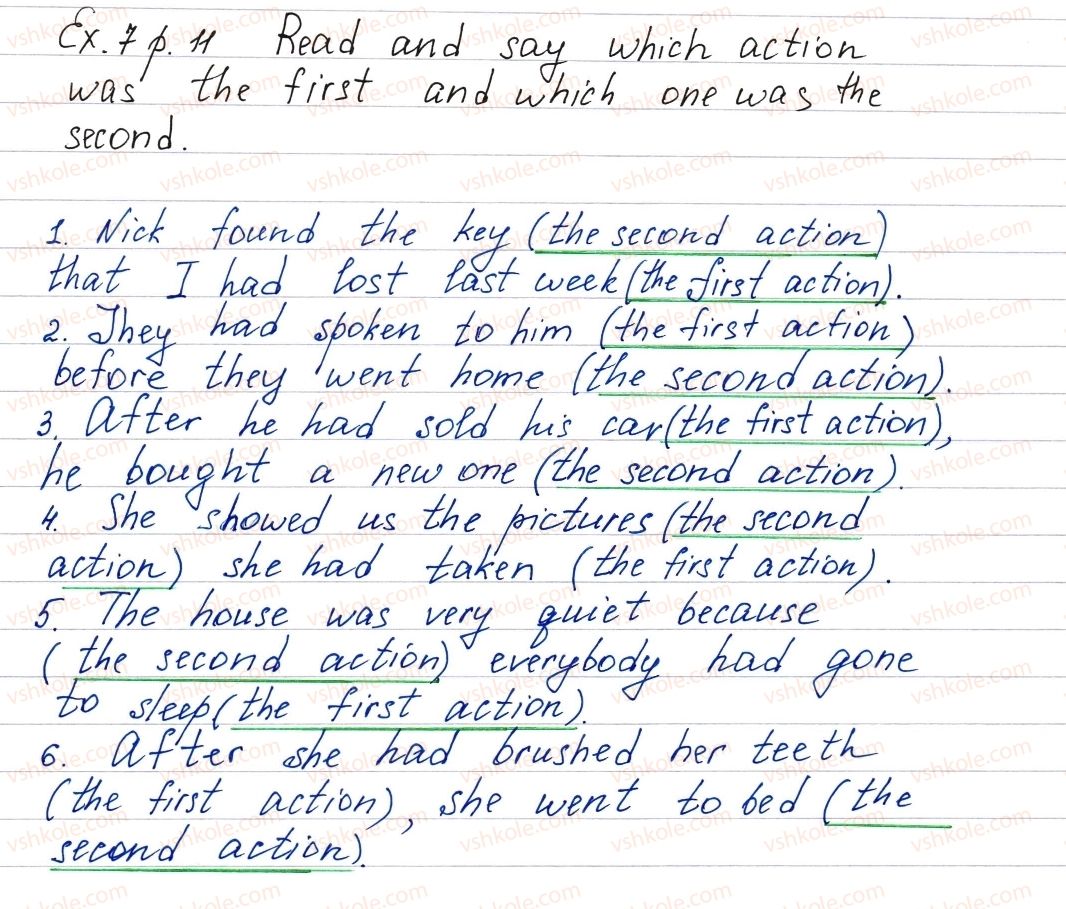 Ex. 7 p. 11 Read and say which action
was the first and which one was the
second.
1. Nick found the key (the second action)
that I had lost last week (the first action).
2. They had spoken to him (the first action)
before they went home (the second action).
3. After he had sold his car (the first action),
he bought a new one (the second action).
4. She showed us the pictures (the second
action) she had taken (the first action).
5. The house was very quiet because
(the second action) everybody had gone
to sleep (the first action).
6. After she had brushed her teeth
(the first action), she went to bed (the
second action).
vshkole.com